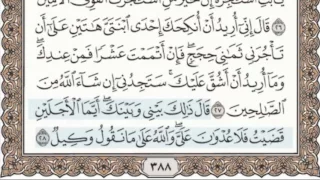 قَالَ إِنِّىٓ أُرِيدُ أَنْ أُنكِحَكَ إِحْدَى ٱبْنَتَىَّ هَٰتَيْنِ عَلَىٰٓ أَن
تَأْجُرَنِى ثَمَٰنِىَ حِجَجٍ فَإِنْ أَتْمَمْتَ عَشْرًا فَمِنْ عِندِكَ
وَمَآ أُرِيدُ أَنْ أَشُقَّ عَلَيْكَ سَتَجِدُنِىٓ إِن شَآءَ ٱللَّهُ مِنَ
ٱلصَّٰلِحِينَ ٢٧ قَالَ ذَٰلِكَ بَيْنِى وَبَيْنَكَ أَيَّمَا ٱلْأَجَلَيْنِ
قَضَيْتُ فَلَا عُدْوَٰنَ عَلَىَّ وَٱللَّهُ عَلَىٰ مَا نَقُولُ وَكِيلٌ ٢٨
٣٨٨